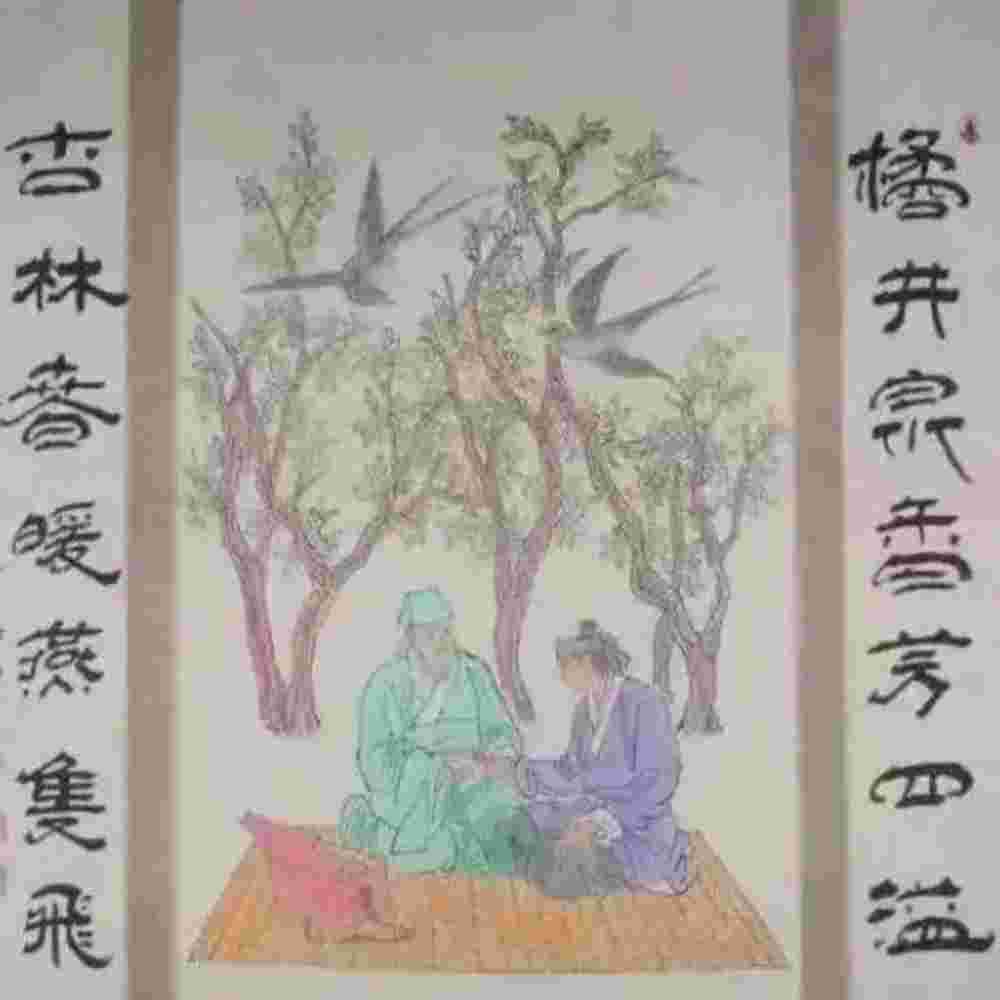 橘井泉香芳四溢
杏林春暖燕隻飛